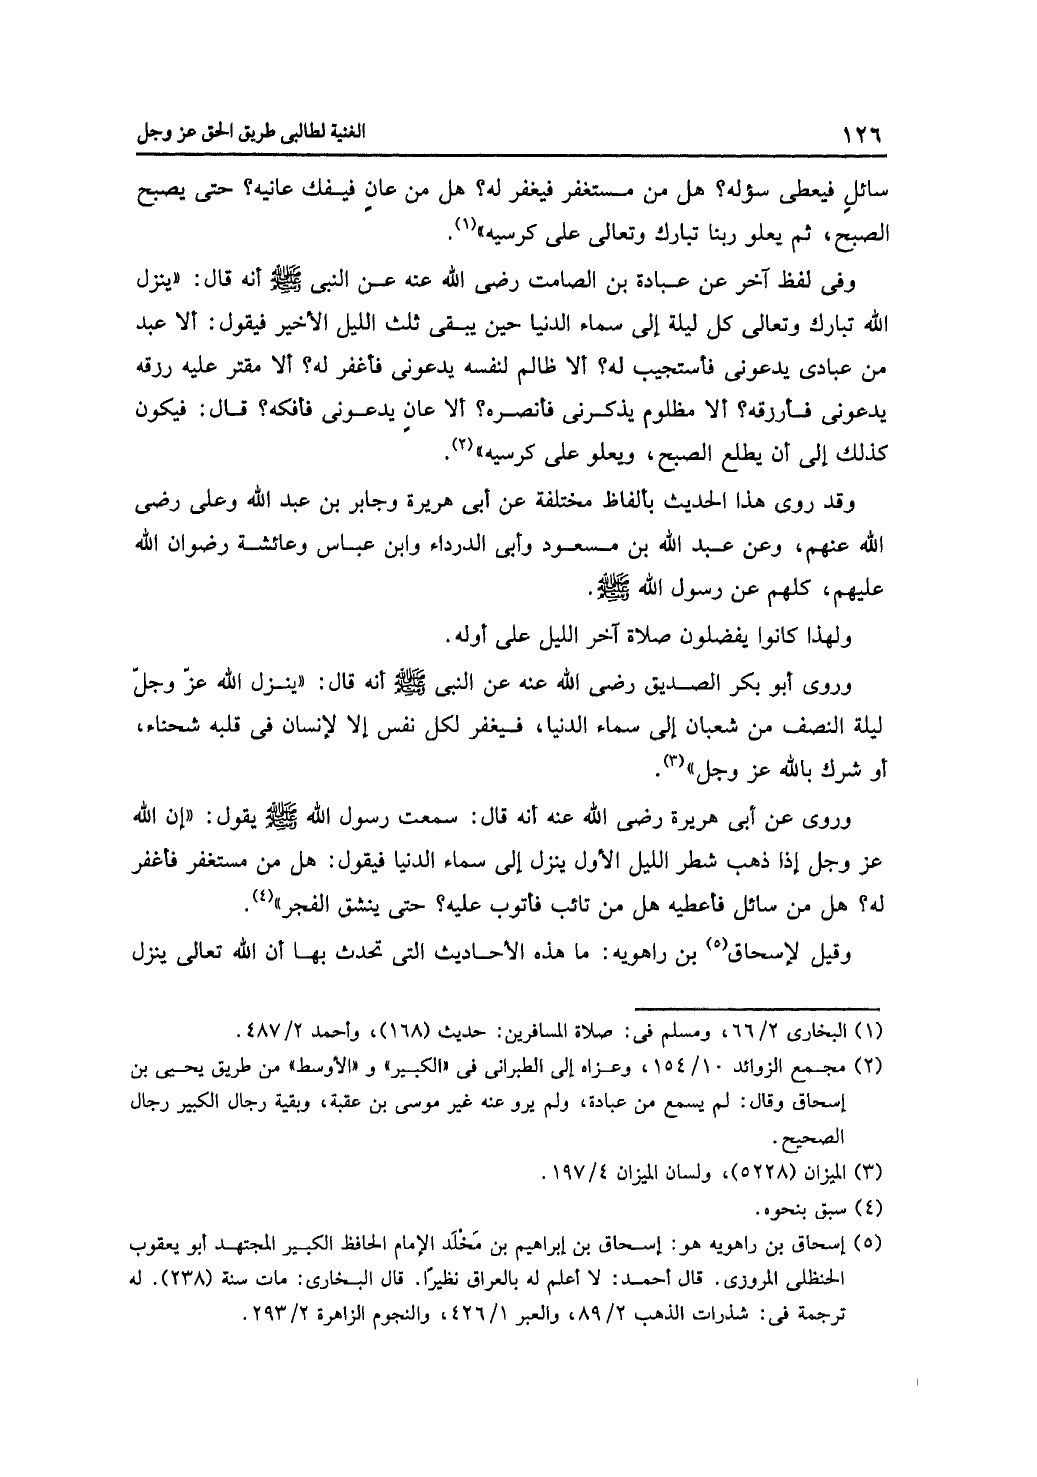 ١٢٦ الغنية لطالبى طريق الحق عز وجل
سائلٍ فيعطى سؤله؟ هل من مستغفر فيغفر له؟ هل من عانٍ فيفك عانيه؟ حتى يصبح
الصبح، ثم يعلو ربنا تبارك وتعالى على كرسيه»(١).
وفى لفظ آخر عن عبادة بن الصامت رضى الله عنه عن النبى ﷺ أنه قال: «ينزل
الله تبارك وتعالى كل ليلة إلى سماء الدنيا حين يبقى ثلث الليل الأخير فيقول: ألا عبد
من عبادى يدعونى فأستجيب له؟ ألا ظالم لنفسه يدعونى فأغفر له؟ ألا مقتر عليه رزقه
يدعونى فأرزقه؟ ألا مظلوم يذكرنى فأنصره؟ ألا عانٍ يدعونى فأفكه؟ قال: فيكون
كذلك إلى أن يطلع الصبح، ويعلو على كرسيه»(٢).
وقد روى هذا الحديث بألفاظ مختلفة عن أبى هريرة وجابر بن عبد الله وعلى رضى
الله عنهم، وعن عبد الله بن مسعود وأبى الدرداء وابن عباس وعائشة رضوان الله
عليهم، كلهم عن رسول الله ﷺ.
ولهذا كانوا يفضلون صلاة آخر الليل على أوله.
وروى أبو بكر الصديق رضى الله عنه عن النبى ﷺ أنه قال: «ينزل الله عزّ وجلّ
ليلة النصف من شعبان إلى سماء الدنيا، فيغفر لكل نفس إلا لإنسان فى قلبه شحناء،
أو شرك بالله عز وجل»(٣).
وروى عن أبى هريرة رضى الله عنه أنه قال: سمعت رسول الله ﷺ يقول: «إن الله
عز وجل إذا ذهب شطر الليل الأول ينزل إلى سماء الدنيا فيقول: هل من مستغفر فأغفر
له؟ هل من سائل فأعطيه هل من تائب فأتوب عليه؟ حتى ينشق الفجر»(٤).
وقيل لإسحاق(٥) بن راهويه: ما هذه الأحاديث التى تحدث بها أن الله تعالى ينزل
(١) البخارى ٦٦/٢، ومسلم فى: صلاة المسافرين: حديث (١٦٨)، وأحمد ٤٨٧/٢.
(٢) مجمع الزوائد ١٥٤/١٠، وعزاه إلى الطبرانى فى «الكبير» و «الأوسط» من طريق يحيى بن
إسحاق وقال: لم يسمع من عبادة، ولم يرو عنه غير موسى بن عقبة، وبقية رجال الكبير رجال
الصحيح.
(٣) الميزان (٥٢٢٨)، ولسان الميزان ١٩٧/٤.
(٤) سبق بنحوه.
(٥) إسحاق بن راهويه هو: إسحاق بن إبراهيم بن مَخْلَد الإمام الحافظ الكبير المجتهد أبو يعقوب
الحنظلى المروزى. قال أحمد: لا أعلم له بالعراق نظيرًا. قال البخارى: مات سنة (٢٣٨). له
ترجمة فى: شذرات الذهب ٨٩/٢، والعبر ٤٢٦/١، والنجوم الزاهرة ٢٩٣/٢.